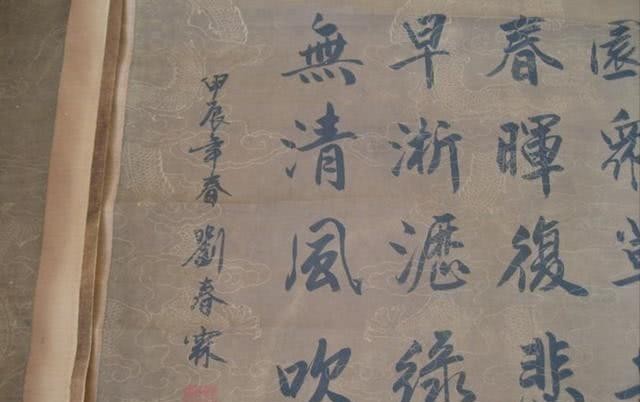 園
春暉復悲
早淅瀝綠
無清風吹
甲辰年春 劉春霖